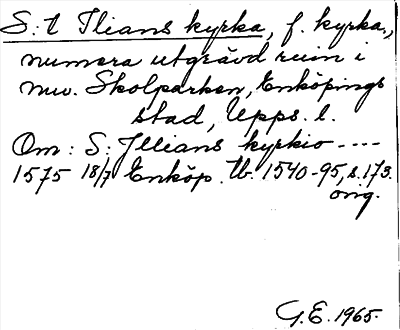 S:t Ilians kyrka, f. kyrka,
numera utgrävd ruin i
nuv. Skolparken, Enköpings
stad, Upps. l.
Om: S: Illians kyrkio ----
1575 18/7 Enköp. tb. 1540-95, s. 173.
orig.
G.E. 1965.